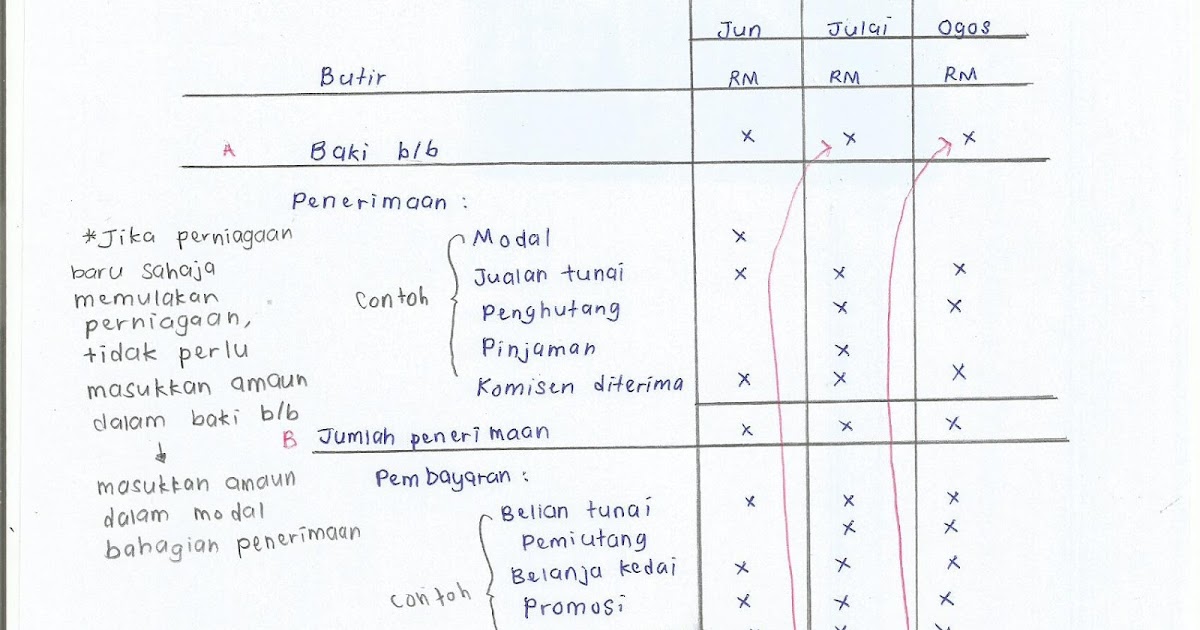 Jun Julai Ogos
Butir RM RM RM
A Baki b/b x x x
Penerimaan :
*Jika perniagaan
baru sahaja
memulakan
perniagaan,
tidak perlu
masukkan amaun
dalam baki b/b
↓
masukkan amaun
dalam modal
bahagian penerimaan
Contoh
Modal x
Jualan tunai x x x
Penghutang x x
Pinjaman x
Komisen diterima x x x
B Jumlah penerimaan x x x
Pembayaran :
Contoh
Belian tunai x x x
Pemiutang x x
Belanja kedai x x x
Promosi x x x